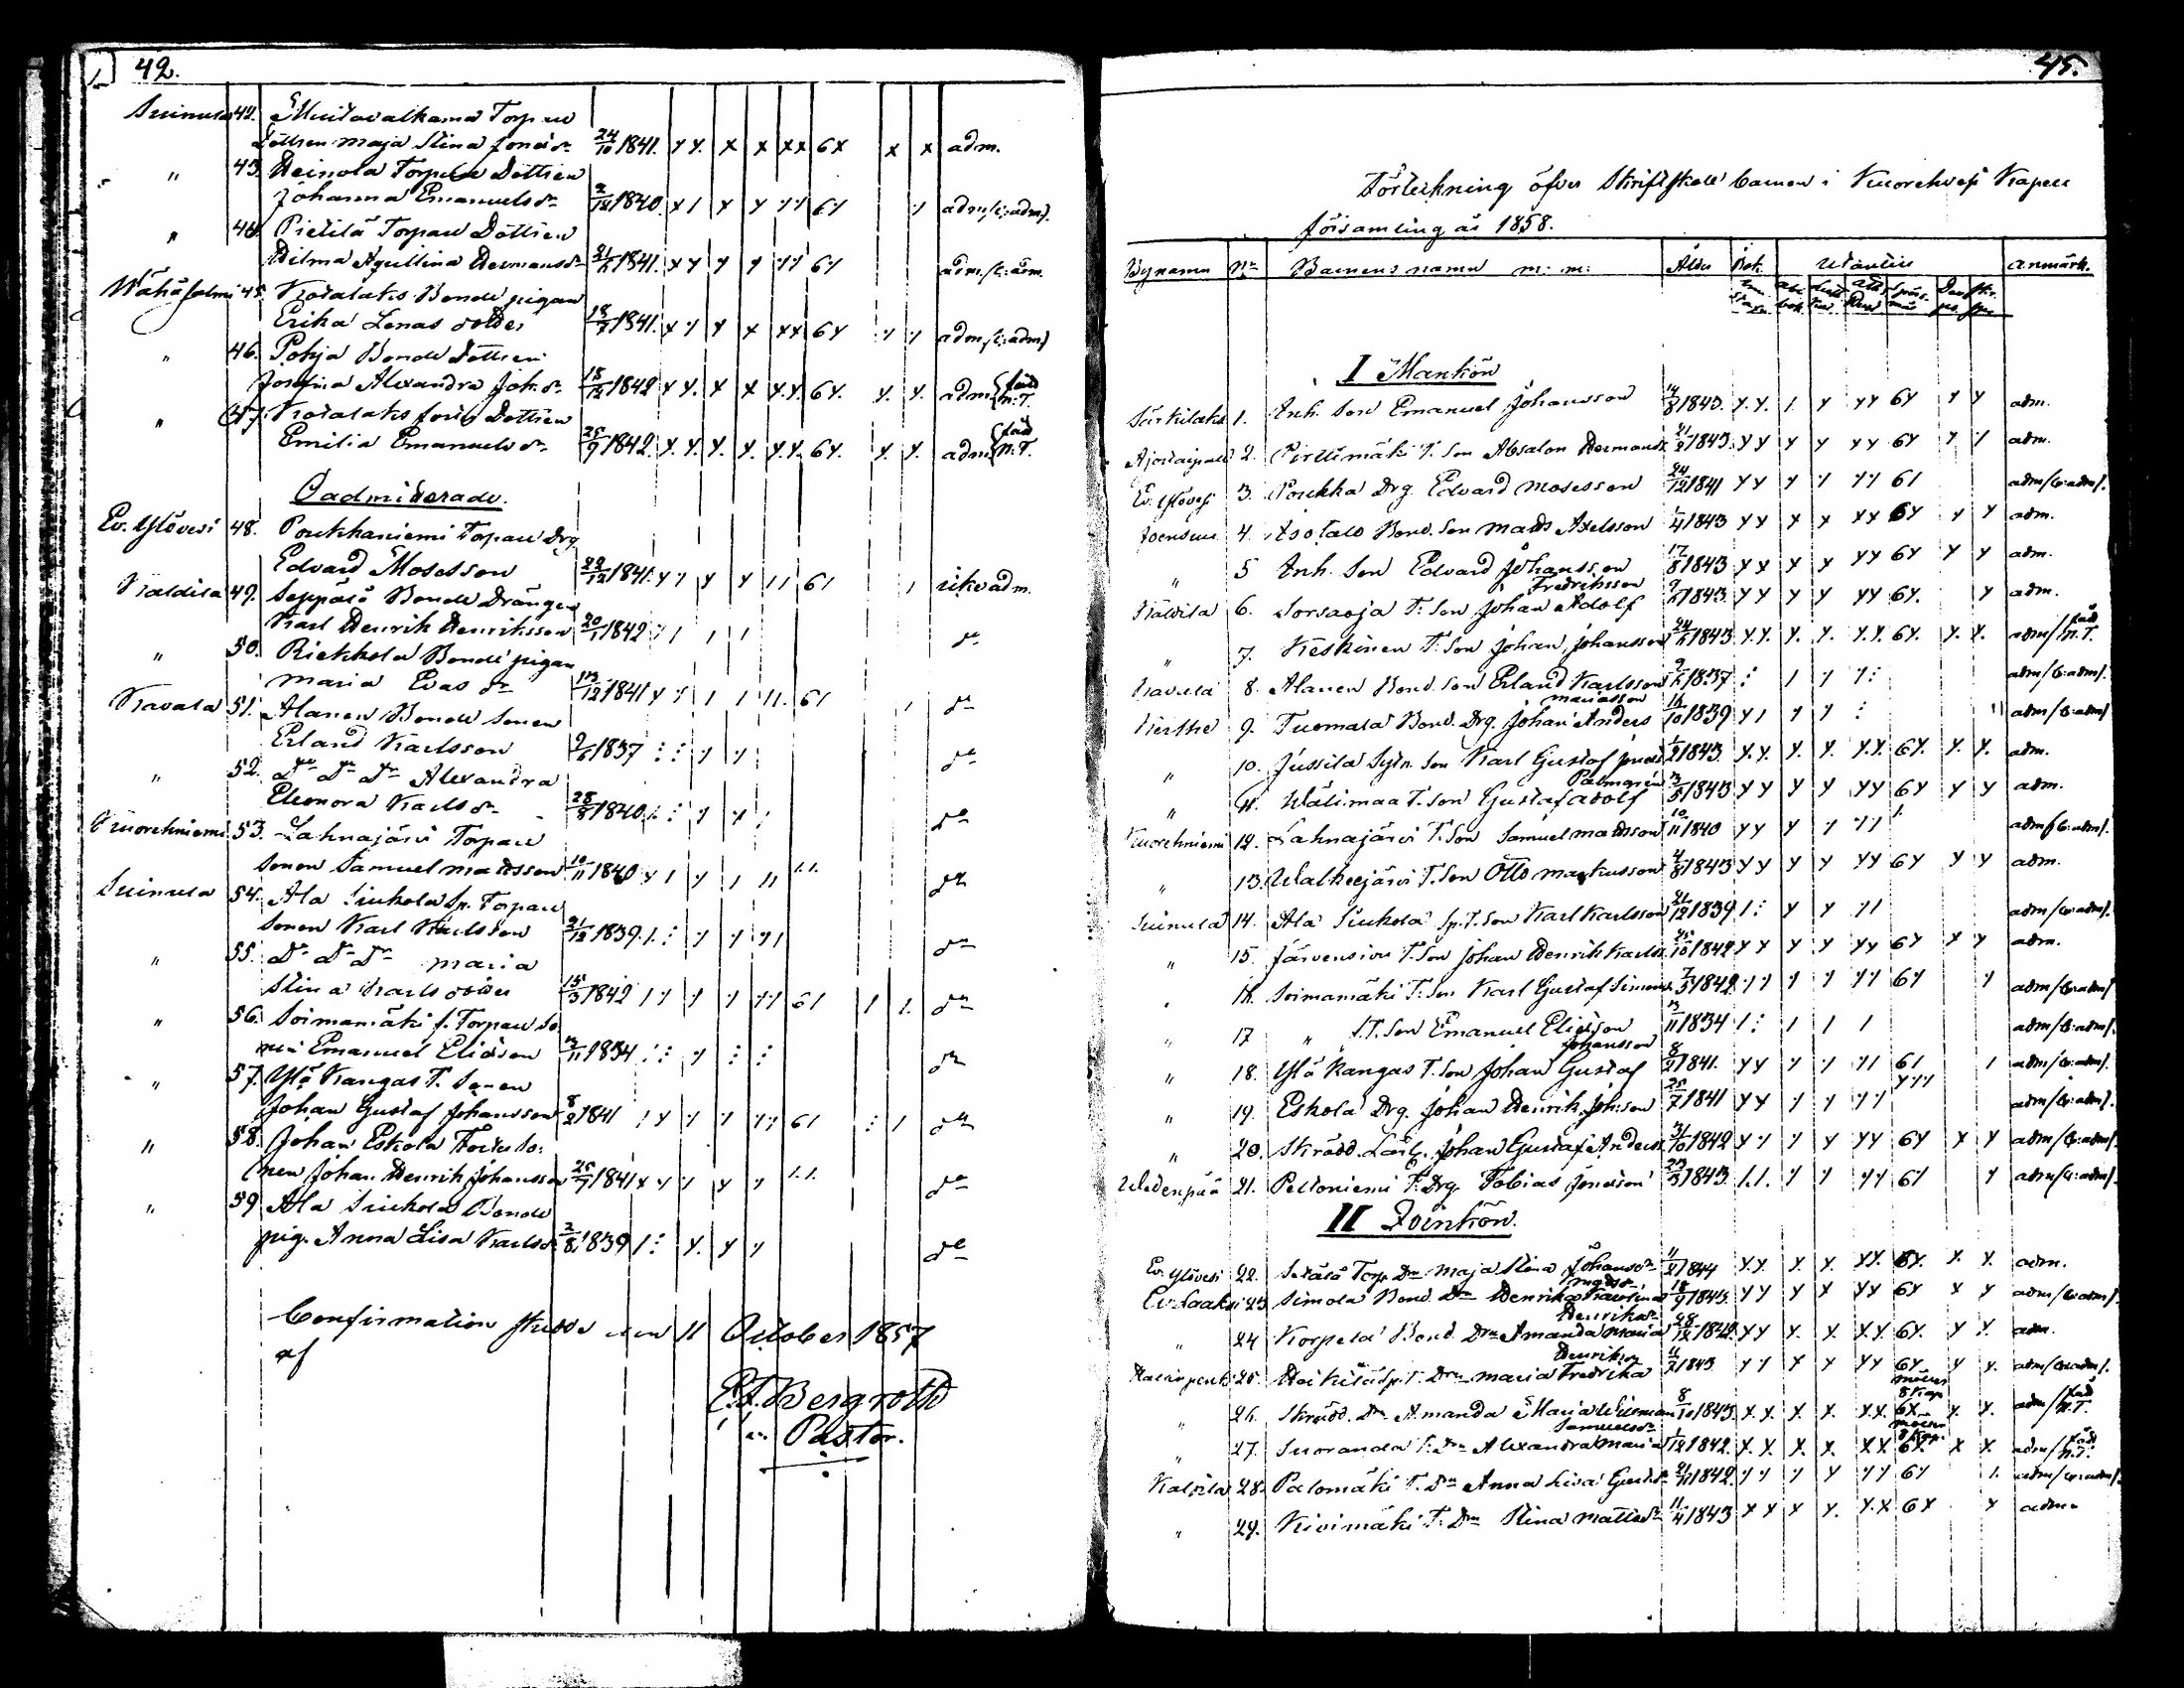 42.
Suinula 42. Mustavalkama Torpare
Dottren Maja Stina Jonasdr 24/10 1841. y y. x x x x 6 x x x adm.
" 43. Heinola Torpare Dottren
Johanna Emanuelsdr 2/12 1840. x 1 y y y y 6 y y adm/c:adm/.
" 44 Pietilä Torpare Dottren
Wilma Agullina Hermansdr 21/6 1841. x y y y y y 6 y adm./c:adm.
Wähäsalmi 45. Kotalaks Bonde pigan
Erika Lenas dotter 18/7 1841. x y x x x x 6 y y y adm/c:adm/
" 46. Pohja Bonde Dottren
Josefina Alexandra Joh. dr 18/12 1842 y y. x x y. y. 6 y. y. y. adm. fåd N.T.
" 47. Kotalaks Dottren
Emilia Emanuelsdr 25/9 1842. y. y. y. y. y. y. 6 y. y. y. adm. fåd N.T.
Oadmitterade.
Ev. Ylövesi 48. Poukkaniemi Topare Drg
Edvard Mosesson 22/12 1841. y y y y 1 1 6 1 1 icke adm.
Kaldila 49. Seppälä Bonde Drängen
Karl Henrik Henriksson 20/1 1842 y 1 1 1 do
" 50. Riekkola Bonde pigan
Maria Evas dr 12/12 1841 y y 1 1 1 1. 6 1 1 do
Kavala 51. Alanen Bonde Sonen
Erland Karlsson 9/6 1837 : : y y do
" 52. do do do Alexandra
Eleonora Karlsdr 28/8 1840. : : y y : do
Kuorehniemi 53. Lahnajärvi Torpare
Sonen Samuel Matsson 10/11 1840 y 1 y 1 1 1 1. 1. do
Suinula 54. Ala Siukola Sp. Torpare
Sonen Karl Karlsson 21/12 1839. 1. : y y y 1 do
" 55. do do do Maria
Stina Karls dotter 15/3 1842 1 y y y y y 6 1 1 1. do
" 56. Soimamäki f. Torpare So
nen Emanuel Eliasson 13/11 1834 : : y : : do
" 57. Ylä Kangas T. Sonen
Johan Gustaf Johansson 8/2 1841 1 y y y y y 6 1 : 1 do
" 58. Johan Eskola So:
nen Johan Henrik Johansson 25/7 1841 x y y y y 1. 1. do
" 59 Ala Siukola Bonde
pig. Anna Lisa Karlsdr 2/8 1839 1 : y. y y do
Confirmation skedde den 11 October 1857
af
E.A. Bergroth
Pastor.
45.
Förtekning öfver Skriftskole barnen i Kuorehvesi Kapell
församling år 1858.
Bynamn No Barnens namn m: m: Ålder Bok. Utantill Anmärk.
I Mankön
Särkilaks 1. Inh. Son Emanuel Johansson 14/8 1843. y. y. 1. y y y 6 y y y adm.
Ajostaipale 2. Pirttimäki T. Son Absalon Hermans. 21/2 1843. y y y y y y 6 y y 1 adm.
Ev. Ylövesi 3. Poukka Drg. Edvard Mosesson 24/12 1841 y y y y y y 6 1 adm/c:adm/.
Joensuu 4. Isotalo Bond. Son Mats Axelsson 1/4 1843 y y x x x x 6 y y y adm.
" 5 Inh. Son Edvard Johansson 17/8 1843 x y x y y y 6 y y y adm.
Fredriksson
Kaldila 6. Sorsaoja T. Son Johan Adolf 9/6 1843. y y y y y y 6 y. y adm.
" 7. Keskinen T. Son Johan Johansson 24/6 1843. y. y. y. y. y. y. 6 y. y. y. adm/fåd N.T.
Kavala 8. Alanen Bond. Son Erland Karlsson 9/6 1837 : 1 y y : adm/c:adm/.
Mariasson
Kerthe 9. Tuomala Bond. Drg. Johan Anders 14/10 1839 y 1 y y : 1 adm/c:adm/
" 10. Jussila Sytn. Son Karl Gustaf Jonas. 1/2 1843. y. y. y. y. y. y. 6 y. y. y. adm.
Palmgren
" 11. Wälimaa T. Son Gustaf Adolf 13/5 1843 y y y y y y 6 y y y adm.
Kuorehniemi 12. Lahnajärvi T. Son Samuel Matsson 10/11 1840 y y y y y 1 1. adm/c:adm/.
" 13. Walkeejärvi T. Son Otto Markusson 4/8 1843 y y y y y y 6 y y y adm.
Suinula 14. Ala Siukola Sp. T. Son Karl Karlsson 21/12 1839 1 : y y y 1 adm/c:adm/.
" 15. Järvensivu T. Son Johan Henrik Karls. 25/10 1842 y y y y y y 6 y y y adm.
" 16. Soimamäki T. Son Karl Gustaf Simons. 7/5 1842. y y y y y y 6 y y adm/c:adm/
" 17 " f.T. Son Emanuel Eliasson 13/11 1834 1 : 1 1 1 adm/c:adm/.
Johansson
" 18. Ylä Kangas T. Son Johan Gustaf 8/2 1841. y y y y y 1 6 1 1 adm/c:adm/.
" 19. Eskola Drg. Johan Henrik Joh:son 25/7 1841 y y y y y y y y y adm/c:adm/.
" 20. Skrädd. Lärl. Johan Gustaf Anders. 31/10 1842 x y y y y y 6 y x y adm/c:adm/
Uedenpää 21. Peltoniemi T. Drg. Tobias Jonasson 23/3 1843. 1. 1. y y y y 6 y y adm/c:adm/.
II Qvinkön.
Ev. Ylövesi 22. Setälä Torp. Dr Maja Stina Johansdr 11/2 1844 x x. x. x. y y. 6 y. x. y. adm.
Matsdr
Ev. Laaksi 23. Simola Bond. Dr Henrika Karolina 18/9 1843. y y y x y y 6 y x y adm/c:adm/.
Henriksdr
" 24 Korpela Bond. Dr Amanda Maria 28/12 1842. x y y. x. x. x. 6 y. y y. adm.
Henriksdr
25. Heikilä Sp. T. Dr Maria Fredrika 11/2 1843 y y x x y y 6 y y y. adm/c:adm/.
" 26. Skrädd. Dr Amanda Maria Wideman 8/10 1843. x. x. x. x. x. x. 6 x. x. x. adm/fåd N.T.
Samuelsdr
" 27. Suoranda T. Dr Alexandra Maria 1/12 1842. x. x. x. x. x. x. 6 x. x x. adm/fåd N.T.
Kaldila 28. Palomäki T. Dr Anna Lisa Gust.dr 21/11 1842. y y y y y y 6 y 1. adm/c:adm/.
" 29. Kivimäki T. Dr Stina Mattsdr 11/4 1843 x x x y. y. x 6 x y adm.